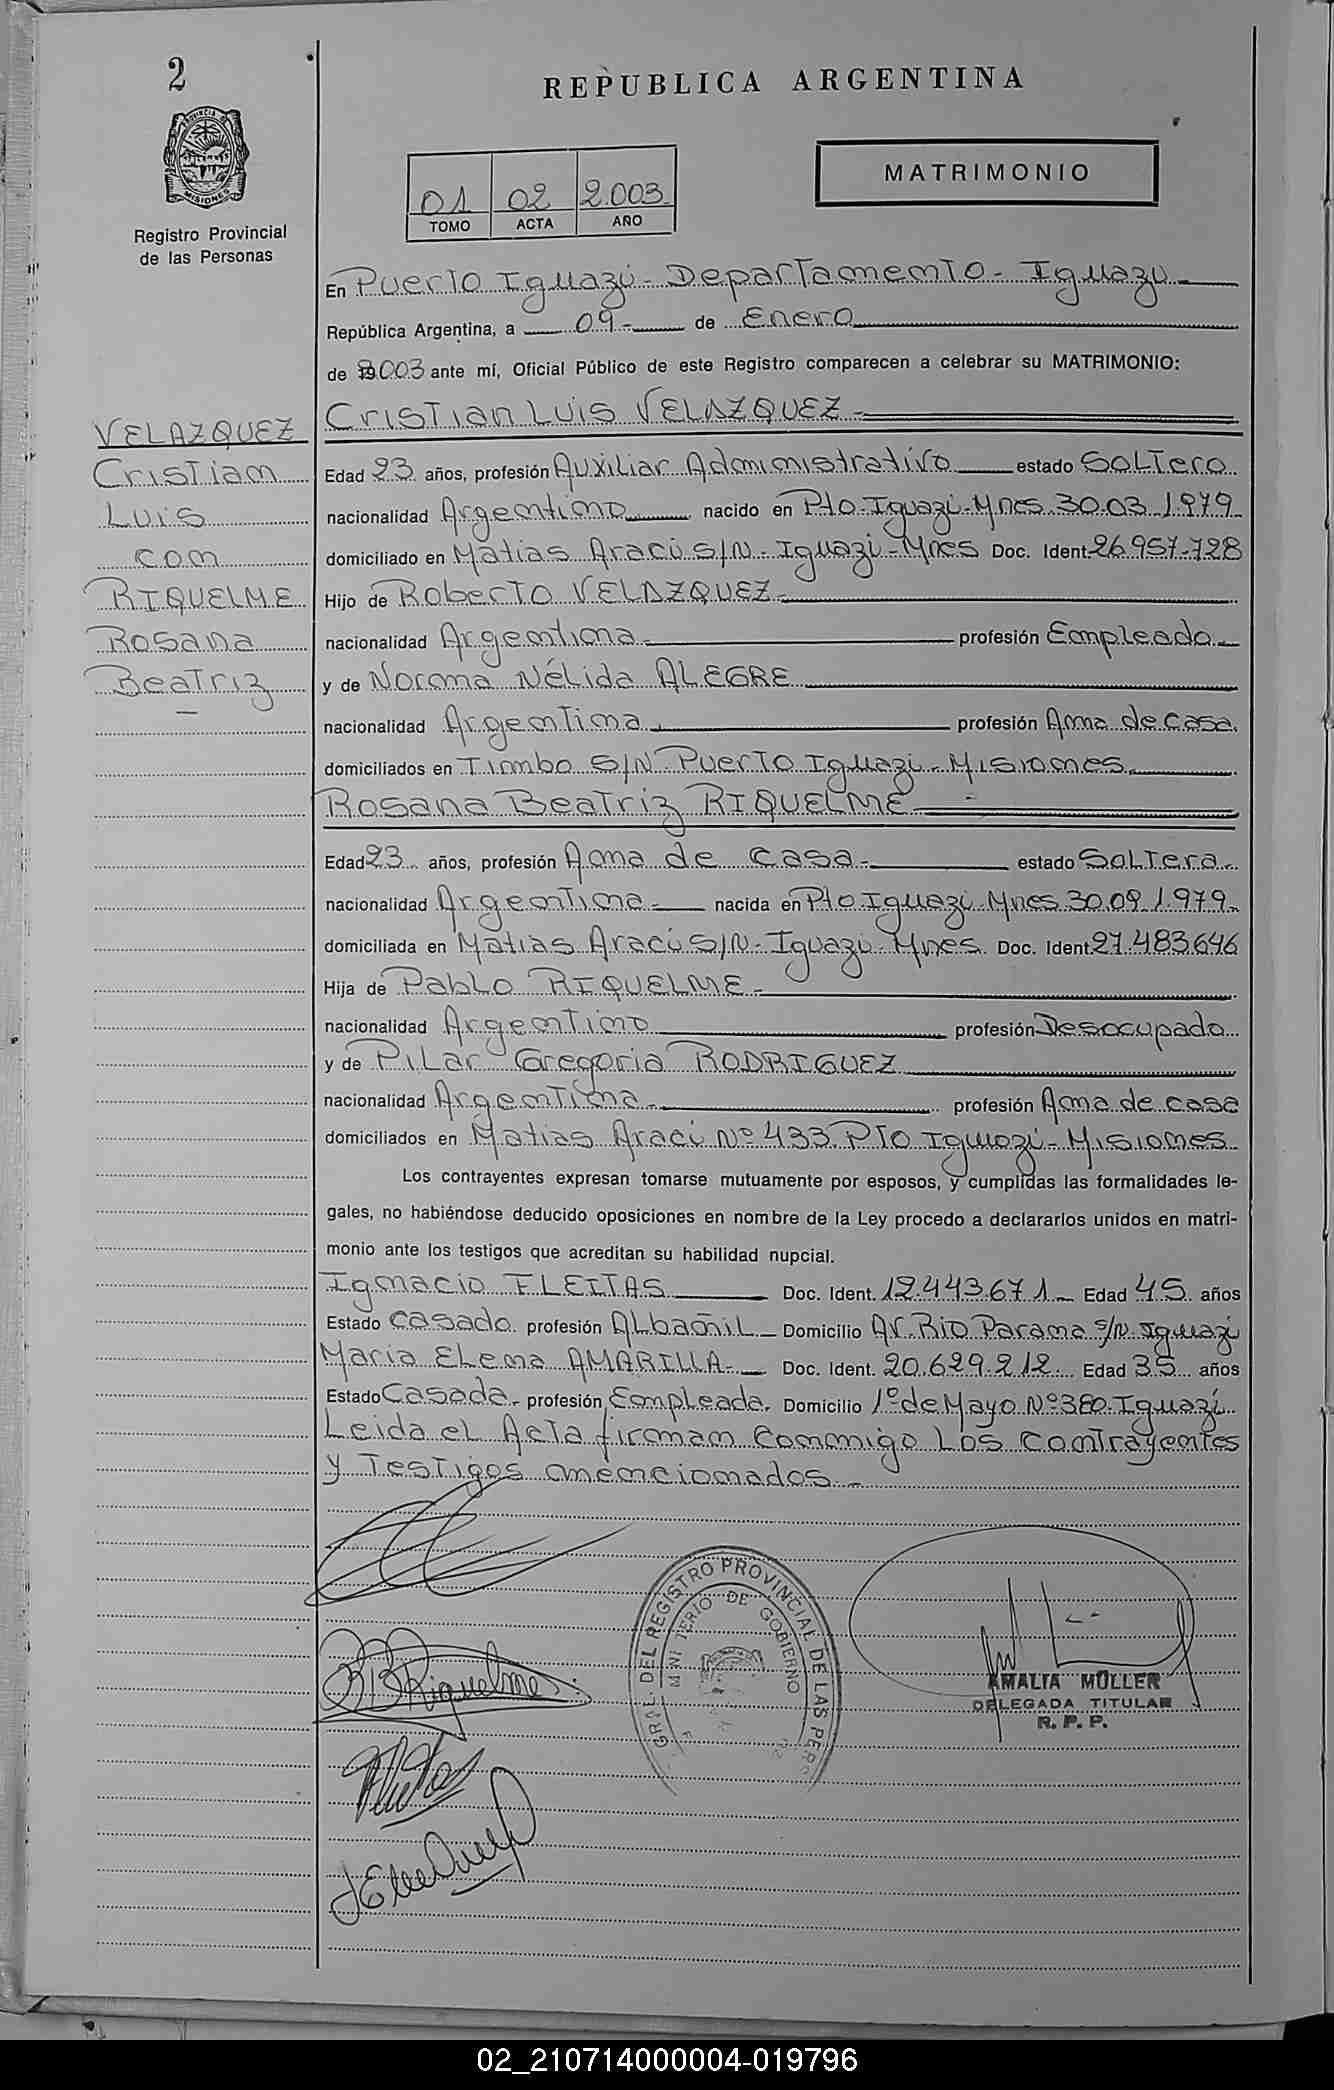 2
REPUBLICA ARGENTINA
MATRIMONIO
01 02 2.003
TOMO ACTA AÑO
PROVINCIA DE
MISIONES
Registro Provincial
de las Personas
En Puerto Iguazú - Departamento - Iguazú
República Argentina, a 09 - de Enero
de 2003 ante mí, Oficial Público de este Registro comparecen a celebrar su MATRIMONIO:
Cristian Luis VELAZQUEZ
VELAZQUEZ
Cristian
Luis
con
RIQUELME
Rosana
Beatriz
Edad 23 años, profesión Auxiliar Administrativo estado Soltero
nacionalidad Argentino nacido en Pto. Iguazú - Mnes 30.03.1.979
domiciliado en Matias Aracú S/N - Iguazú - Mnes Doc. Ident. 26.957.728
Hijo de Roberto VELAZQUEZ
nacionalidad Argentina profesión Empleado
y de Norma Nélida ALEGRE
nacionalidad Argentina profesión Ama de casa.
domiciliados en Timbo S/N Puerto Iguazú - Misiones
Rosana Beatriz RIQUELME
Edad 23 años, profesión Ama de casa estado Soltera
nacionalidad Argentina nacida en Pto Iguazú - Mnes 30.09.1.979
domiciliada en Matias Aracú S/N - Iguazú - Mnes. Doc. Ident. 27.483.646
Hija de Pablo RIQUELME
nacionalidad Argentino profesión Desocupado
y de Pilar Gregoria RODRIGUEZ
nacionalidad Argentina profesión Ama de casa
domiciliados en Matias Araci Nº 433 Pto Iguazú - Misiones
Los contrayentes expresan tomarse mutuamente por esposos, y cumplidas las formalidades le-
gales, no habiéndose deducido oposiciones en nombre de la Ley procedo a declararlos unidos en matri-
monio ante los testigos que acreditan su habilidad nupcial.
Ignacio FLEITAS Doc. Ident. 12.443.671 Edad 45 años
Estado casado profesión Albañil Domicilio Av. Rio Parana S/N. Iguazú
Maria Elena AMARILLA Doc. Ident. 20.629.212 Edad 35 años
Estado Casada profesión Empleada. Domicilio 1º de Mayo Nº 380. Iguazú
Leida el Acta firman conmigo los contrayentes
y testigos mencionados
RBRiquelme
GRAL. DEL REGISTRO PROVINCIAL DE LAS PER
MINI TERIO DE GOBIERNO
AMALIA MÜLLER
DELEGADA TITULAR
R. P. P.
02_210714000004-019796